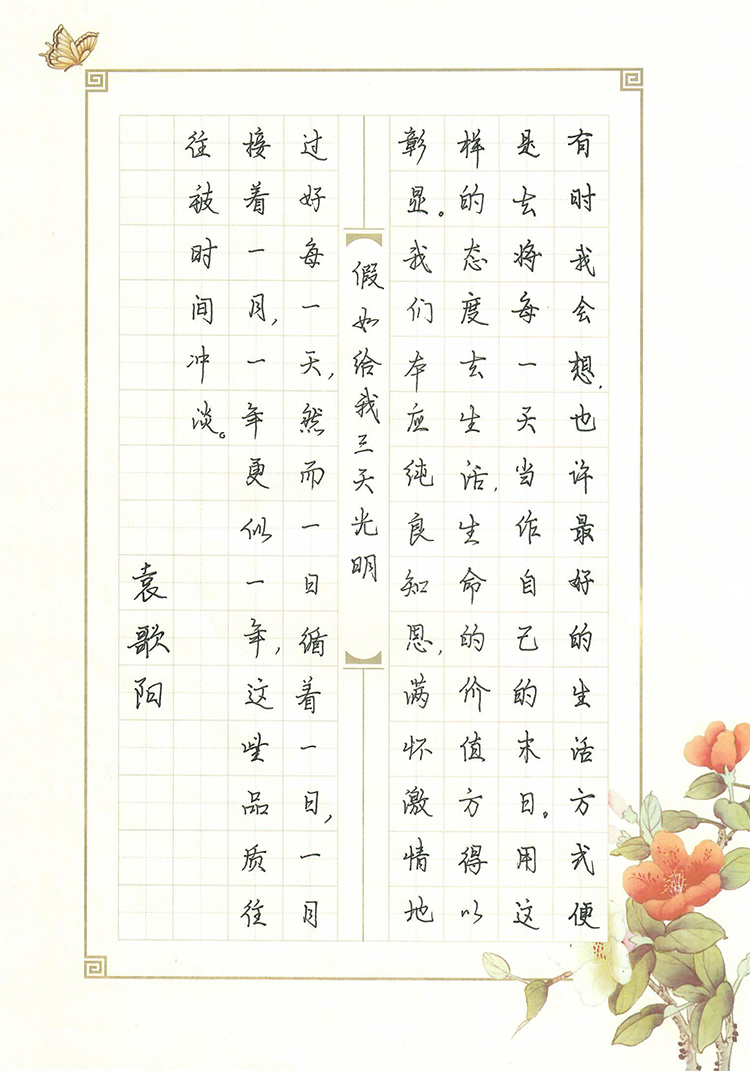 有时我会想，也许最好的生活方式便
是去将每一天当作自己的末日。用这
样的态度去生活，生命的价值方得以
彰显。我们本应纯良知恩，满怀激情地
假如给我三天光明
过好每一天，然而一日循着一日，一月
接着一月，一年更似一年，这些品质往
往被时间冲淡。
袁歌阳